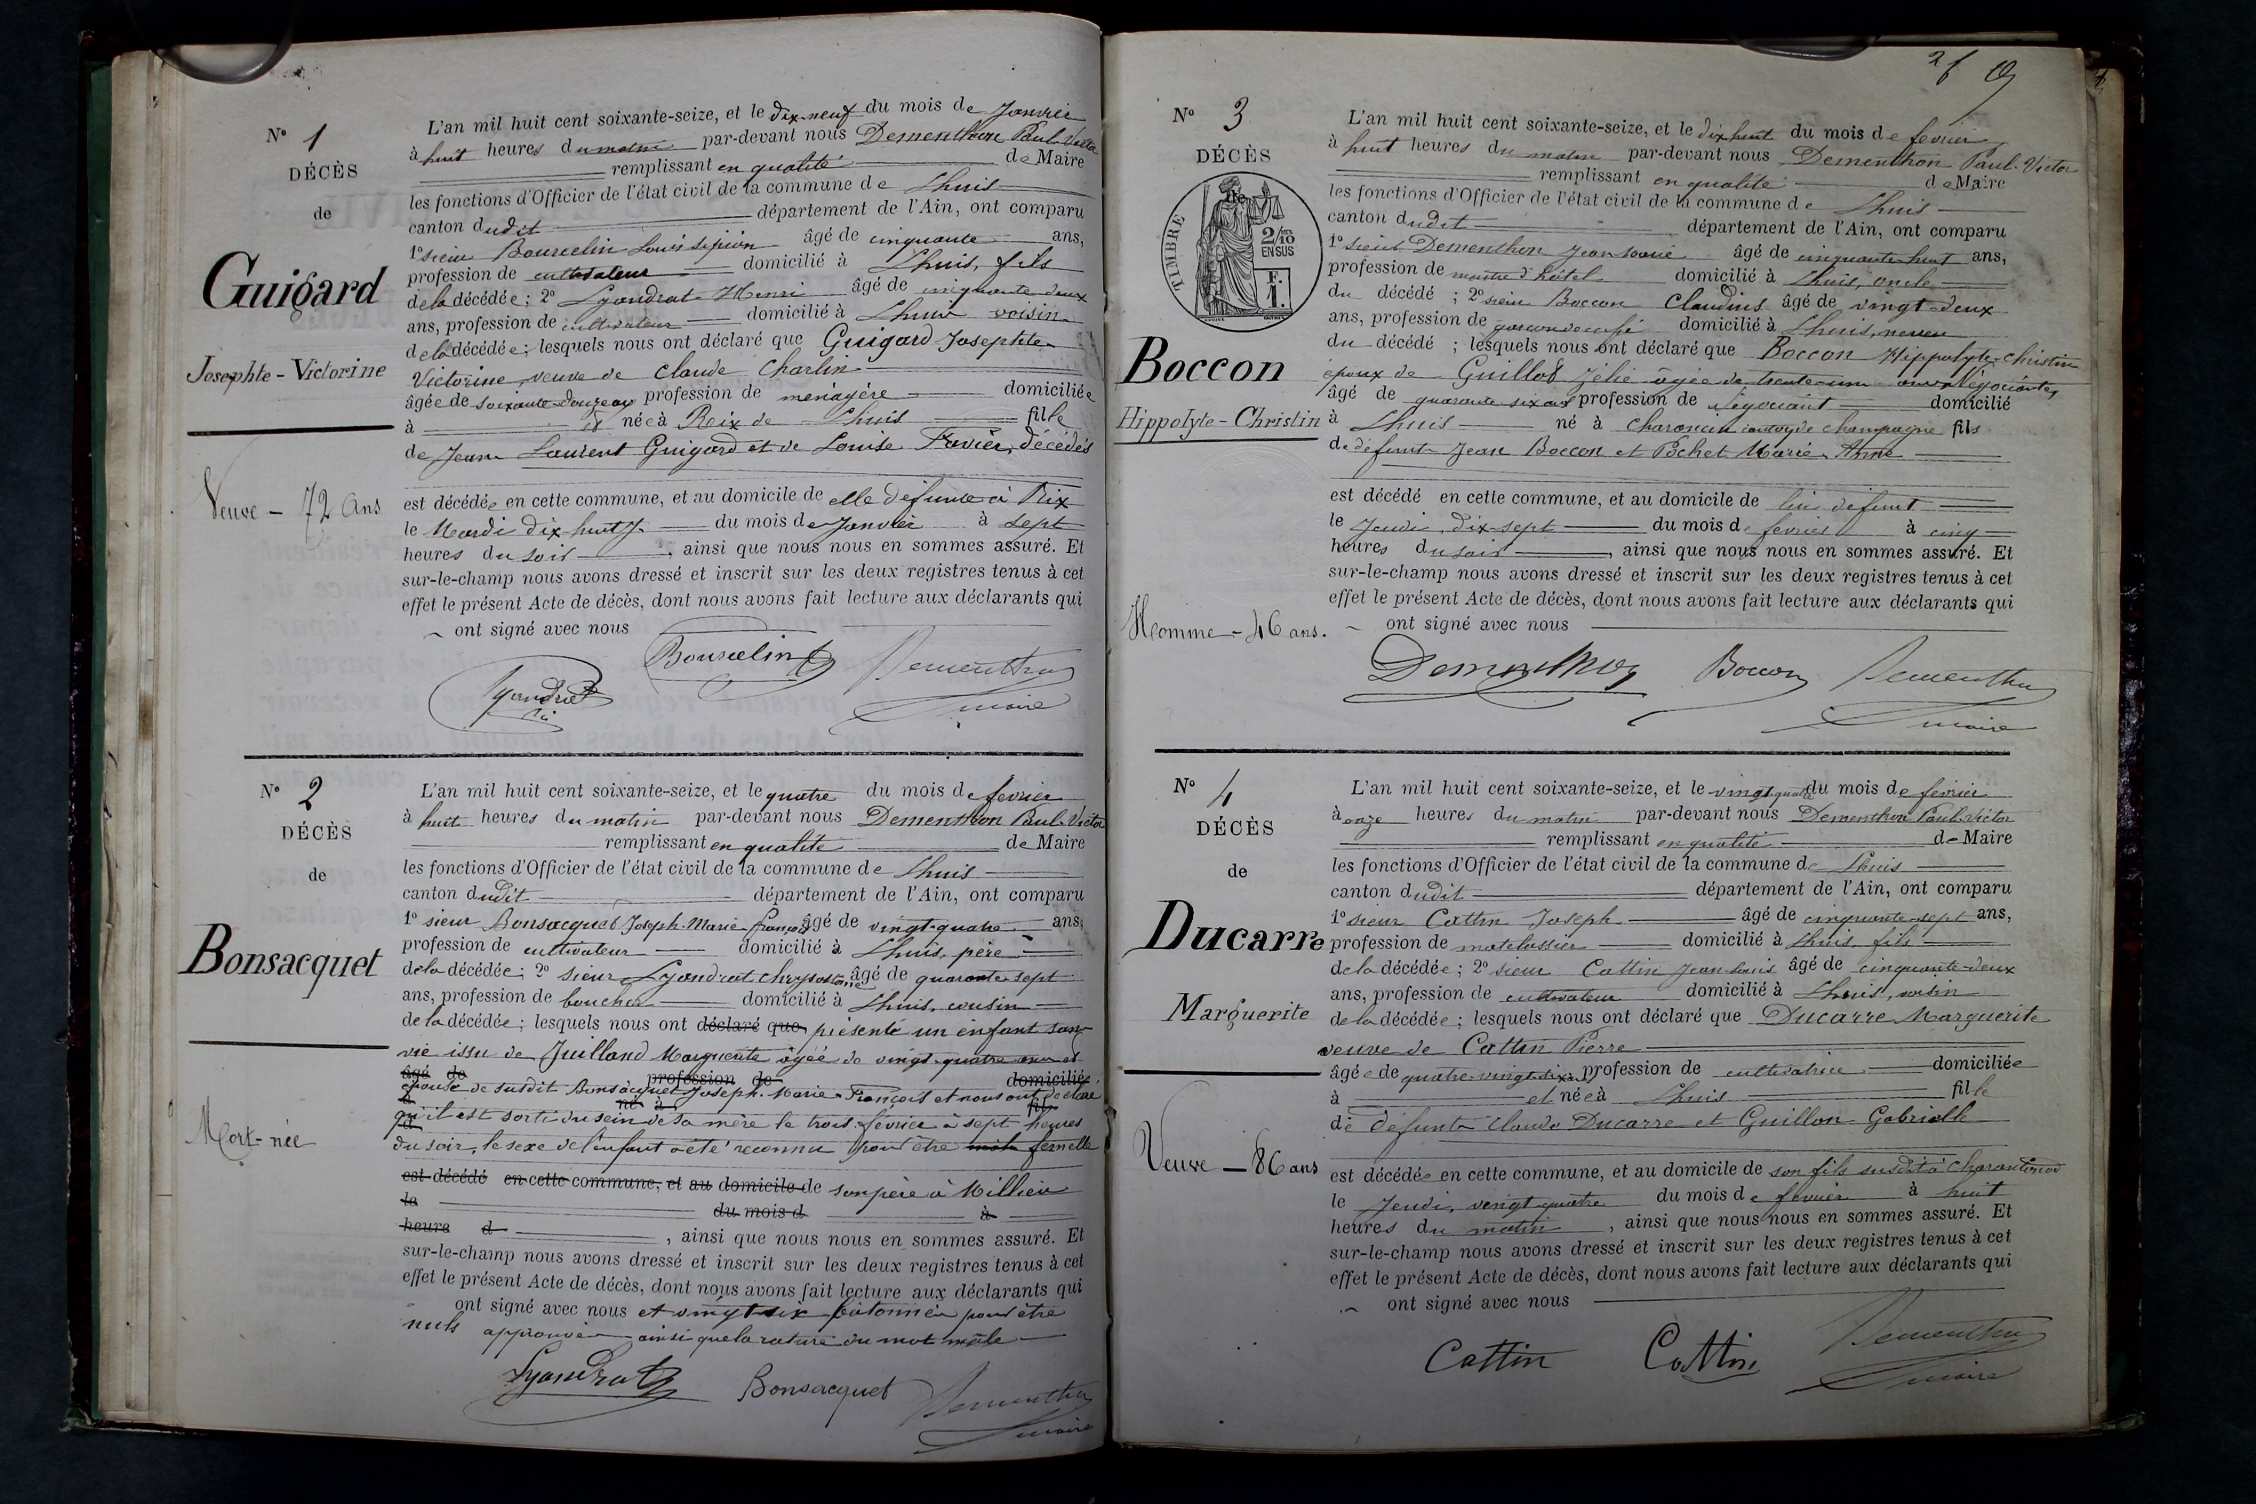 N° 1
DÉCÈS
de
Guigard
Josephte - Victorine
Veuve - 72 Ans
L'an mil huit cent soixante-seize, et le dix-neuf du mois de Janvier
à huit heures du matin par-devant nous Dementhon Paul-Victor
remplissant en qualité de Maire
les fonctions d'Officier de l'état civil de la commune de Lhuis
canton dudit département de l'Ain, ont comparu
1° sieur Bourcelin Louis âgé de cinquante ans,
profession de cultivateur domicilié à Lhuis, fils
de la décédée; 2° Lyandrat Henri âgé de cinquante deux
ans, profession de cultivateur domicilié à Lhuis voisin
de la décédée; lesquels nous ont déclaré que Guigard Josephte
Victorine, veuve de Claude Charlin
âgée de soixante-douze ans profession de ménagère domiciliée
à et née à Rix de Lhuis fille
de Jean Laurent Guigard et de Louise Favier, décédés
est décédée en cette commune, et au domicile de elle défunte à Rix
le Mardi dix huit du mois de Janvier à sept
heures du soir, ainsi que nous nous en sommes assuré. Et
sur-le-champ nous avons dressé et inscrit sur les deux registres tenus à cet
effet le présent Acte de décès, dont nous avons fait lecture aux déclarants qui
ont signé avec nous
Bourcelin Dementhon
Lyandrat maire
N° 2
DÉCÈS
de
Bonsacquet
Mort-née
L'an mil huit cent soixante-seize, et le quatre du mois de fevrier
à huit heures du matin par-devant nous Dementhon Paul-Victor
remplissant en qualité de Maire
les fonctions d'Officier de l'état civil de la commune de Lhuis
canton dudit département de l'Ain, ont comparu
1° sieur Bonsacquet Joseph-Marie françois âgé de vingt-quatre ans,
profession de cultivateur domicilié à Lhuis, père
de la décédée; 2° sieur Lyandrat chrysostome âgé de quarante sept
ans, profession de boucher domicilié à Lhuis, cousin
de la décédée; lesquels nous ont déclaré que présenté un enfant sans
vie issu de Juilland Marguerite âgée de vingt-quatre ans et
âgé de profession de domicilié
épouse de susdit Bonsacquet Joseph-Marie-François et nous ont déclaré
à né à fils
qu'il est sorti du sein de sa mère le trois février à sept heures
du soir, le sexe de l'enfant a été reconnu pour être mâle femelle
est décédé en cette commune, et au domicile de son père à Millieu
le du mois d à
heure d , ainsi que nous nous en sommes assuré. Et
sur-le-champ nous avons dressé et inscrit sur les deux registres tenus à cet
effet le présent Acte de décès, dont nous avons fait lecture aux déclarants qui
ont signé avec nous et vingt-six bâtonnés pour être
nuls approuvés ainsi que la rature du mot mâle
Lyandrat Bonsacquet Dementhon
maire
N° 3
DÉCÈS
de
TIMBRE
2/10
EN SUS
F.
1.
Boccon
Hippolyte - Christin
Homme - 46 ans.
L'an mil huit cent soixante-seize, et le dix huit du mois de fevrier
à huit heures du matin par-devant nous Dementhon Paul-Victor
remplissant en qualité de Maire
les fonctions d'Officier de l'état civil de la commune de Lhuis
canton dudit département de l'Ain, ont comparu
1° sieur Dementhon Jean âgé de cinquante huit ans,
profession de maître d'hôtel domicilié à Lhuis, oncle
du décédé ; 2° sieur Boccon Claudius âgé de vingt-deux
ans, profession de garcon de café domicilié à Lhuis, neveu
du décédé ; lesquels nous ont déclaré que Boccon Hippolyte-christin
époux de Guillot Zélie âgée de trente-un ans Négociante,
âgé de quarante six ans profession de Négociant domicilié
à Lhuis né à canton de champagne fils
de défunt Jean Boccon et Pochet Marie-Anne
est décédé en cette commune, et au domicile de lui défunt
le Jeudi, dix-sept du mois de fevrier à cinq
heures du soir, ainsi que nous nous en sommes assuré. Et
sur-le-champ nous avons dressé et inscrit sur les deux registres tenus à cet
effet le présent Acte de décès, dont nous avons fait lecture aux déclarants qui
ont signé avec nous
Dementhon Boccon Dementhon
maire
N° 4
DÉCÈS
de
Ducarre
Marguerite
Veuve - 86 ans
L'an mil huit cent soixante-seize, et le vingt-quatre du mois de février
à onze heures du matin par-devant nous Dementhon Paul-Victor
remplissant en qualité de Maire
les fonctions d'Officier de l'état civil de la commune de Lhuis
canton dudit département de l'Ain, ont comparu
1° sieur Cattin Joseph âgé de cinquante-sept ans,
profession de matelassier domicilié à Lhuis, fils
de la décédée; 2° sieur Cattin Jean-Louis âgé de cinquante-deux
ans, profession de cultivateur domicilié à Lhuis, voisin
de la décédée; lesquels nous ont déclaré que Ducarre Marguerite
veuve de Cattin Pierre
âgée de quatre-vingt-six ans profession de cultivatrice domiciliée
à et née à Lhuis fille
de défunts Claude Ducarre et Guillon Gabrielle
est décédée en cette commune, et au domicile de son fils susdit à
le Jeudi, vingt quatre du mois de février à huit
heures du matin, ainsi que nous nous en sommes assuré. Et
sur-le-champ nous avons dressé et inscrit sur les deux registres tenus à cet
effet le présent Acte de décès, dont nous avons fait lecture aux déclarants qui
ont signé avec nous
Cattin Cattin Dementhon
maire